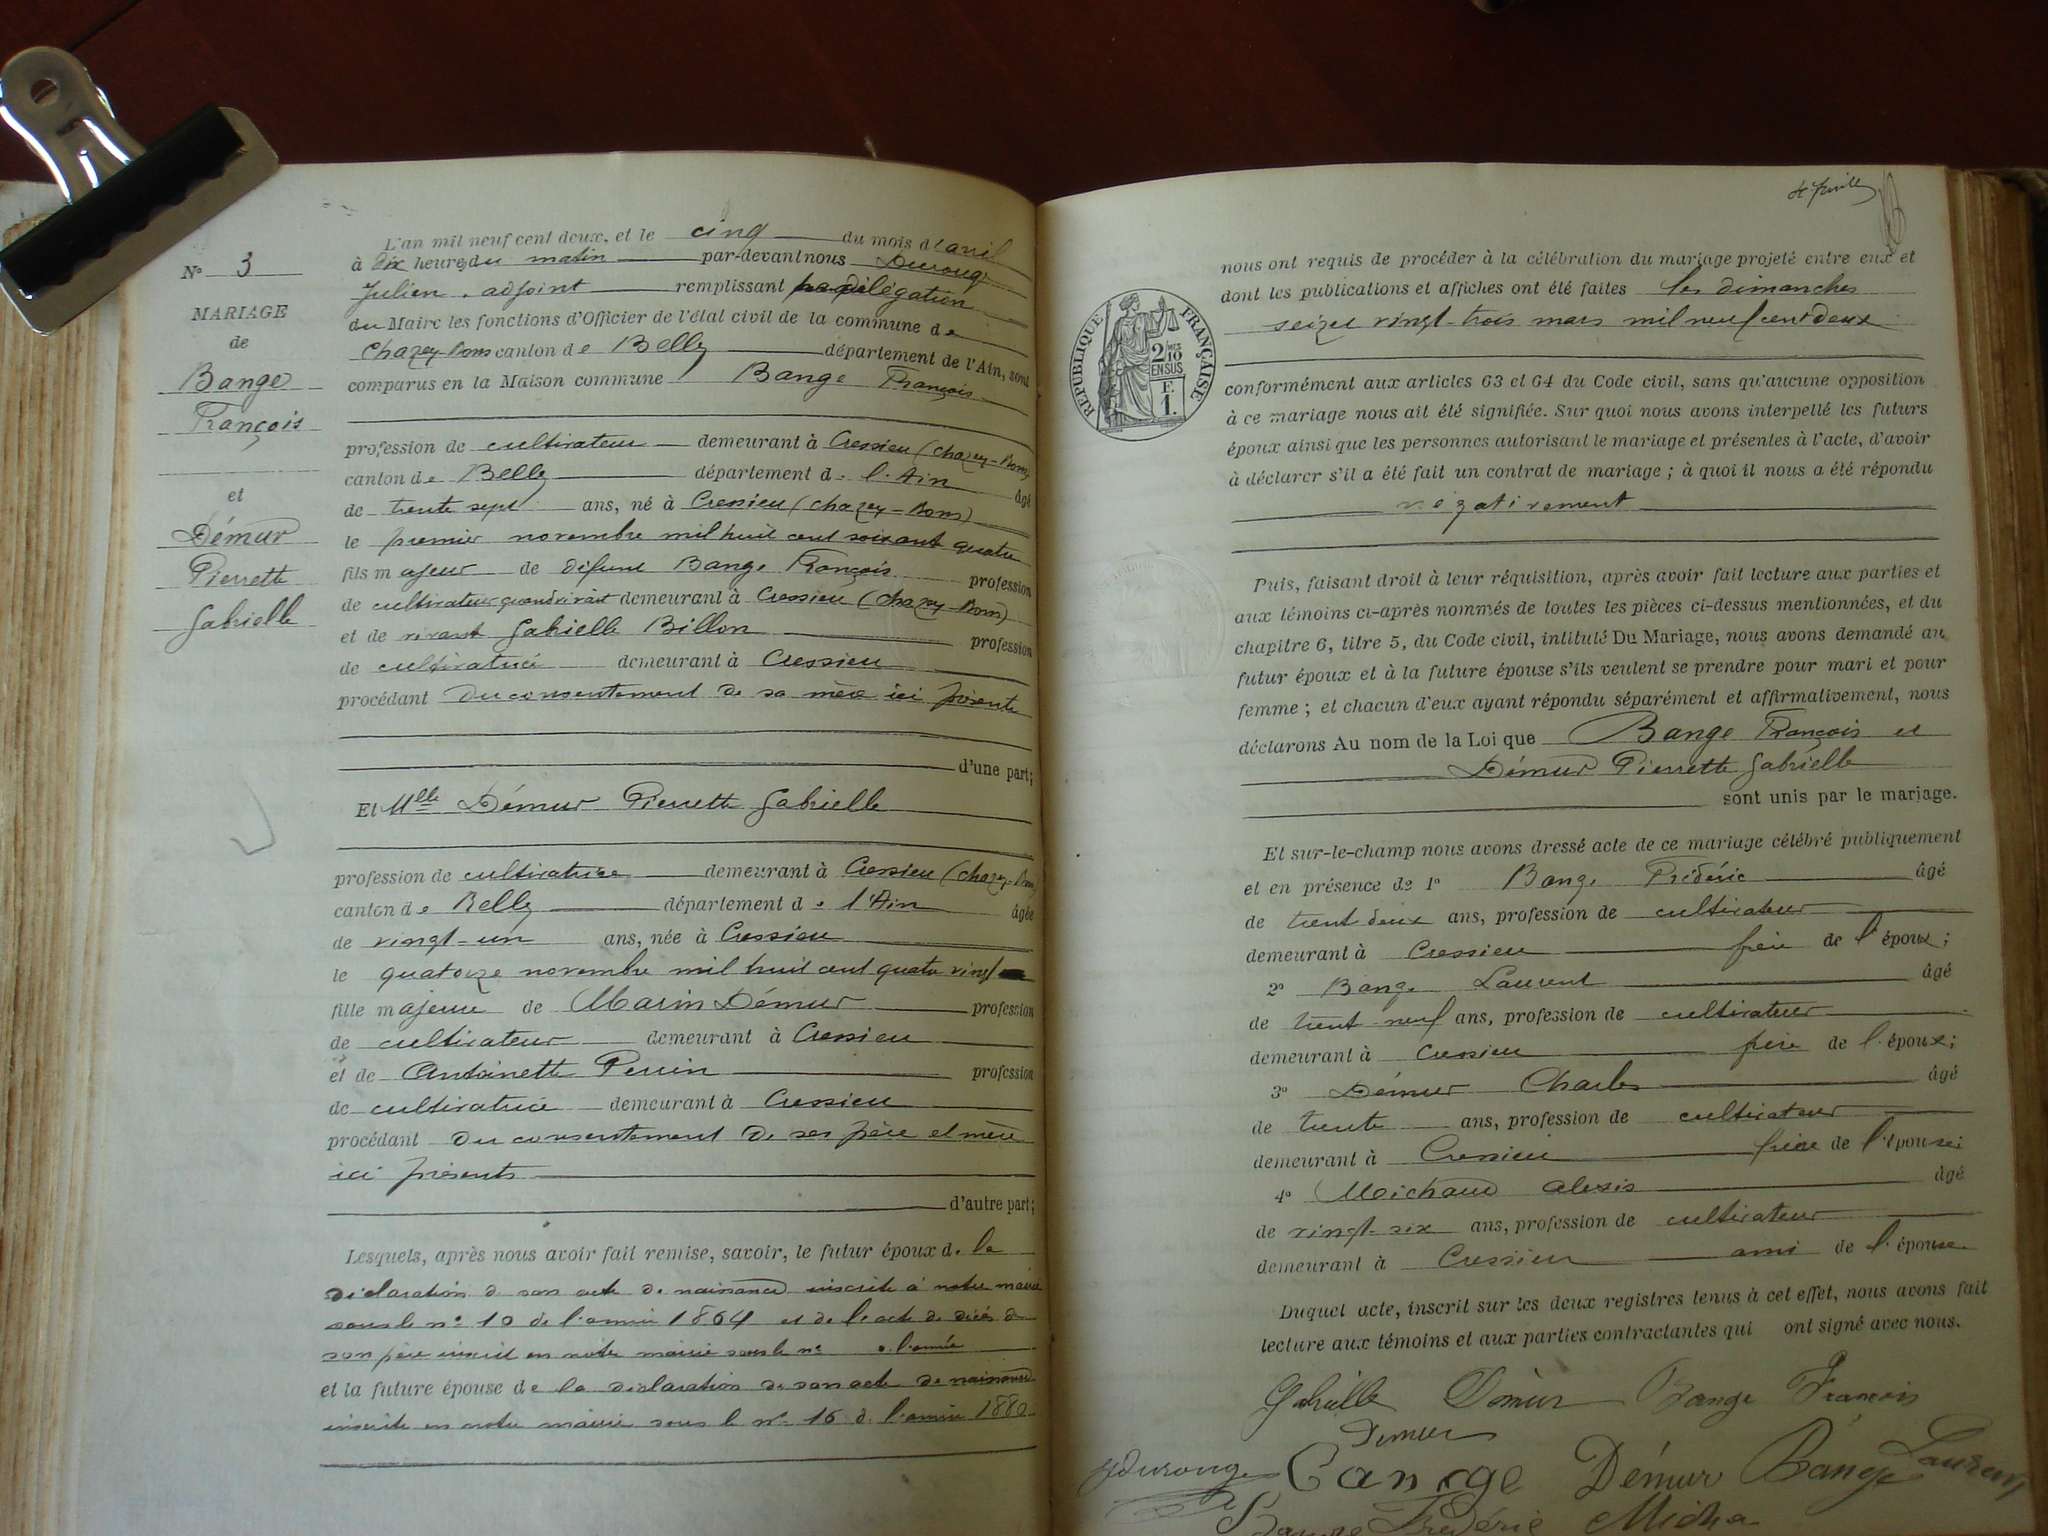 N° 3
MARIAGE
de
Bange
François
et
Démur
Pierrette
Gabrielle
L'an mil neuf cent deux, et le cinq du mois d'avril
à dix heures du matin par-devant nous Durouge
Julien, adjoint remplissant par délégation
du Maire les fonctions d'Officier de l'état civil de la commune de
Chazey-Bons canton de Belley département de l'Ain, sont
comparus en la Maison commune Bange François
profession de cultivateur demeurant à Cressieu (Chazey-Bons)
canton de Belley département de l'Ain âgé
de trente sept ans, né à Cressieu (Chazey-Bons)
le premier novembre mil huit cent soixant quatre
fils majeur de défunt Bange François profession
de cultivateur quand vivait demeurant à Cressieu (Chazey-Bons)
et de vivant Gabrielle Billon profession
de cultivatrice demeurant à Cressieu
procédant du consentement de sa mère ici présente
d'une part;
Et Mlle Démur Pierrette Gabrielle
profession de cultivatrice demeurant à Cressieu (Chazey-Bons)
canton de Belley département de l'Ain âgée
de vingt-un ans, née à Cressieu
le quatorze novembre mil huit cent quatre vingt
fille majeure de Marin Démur profession
de cultivateur demeurant à Cressieu
et de Antoinette Perrin profession
de cultivatrice demeurant à Cressieu
procédant du consentement de ses père et mère
ici présents
d'autre part;
Lesquels, après nous avoir fait remise, savoir, le futur époux de la
déclaration de son acte de naissance inscrite à notre mairie
sous le n° 10 de l'année 1864 et de l'acte de décès de
son père inscrit en notre mairie sous le n° l'année
et la future épouse de la déclaration de son acte de naissance
inscrite en notre mairie sous le n° 16 de l'année 1880
RÉPUBLIQUE FRANÇAISE
2/10
EN SUS
F.
1.
nous ont requis de procéder à la célébration du mariage projeté entre eux et
dont les publications et affiches ont été faites les dimanches
seize vingt-trois mars mil neuf cent deux
conformément aux articles 63 et 64 du Code civil, sans qu'aucune opposition
à ce mariage nous ait été signifiée. Sur quoi nous avons interpellé les futurs
époux ainsi que les personnes autorisant le mariage et présentes à l'acte, d'avoir
à déclarer s'il a été fait un contrat de mariage ; à quoi il nous a été répondu
négativement
Puis, faisant droit à leur réquisition, après avoir fait lecture aux parties et
aux témoins ci-après nommés de toutes les pièces ci-dessus mentionnées, et du
chapitre 6, titre 5, du Code civil, intitulé Du Mariage, nous avons demandé au
futur époux et à la future épouse s'ils veulent se prendre pour mari et pour
femme ; et chacun d'eux ayant répondu séparément et affirmativement, nous
déclarons Au nom de la Loi que Bange François et
Démur Pierrette Gabrielle
sont unis par le mariage.
Et sur-le-champ nous avons dressé acte de ce mariage célébré publiquement
et en présence de 1° Bange Frédéric âgé
de trent deux ans, profession de cultivateur
demeurant à Cressieu frère de l'époux;
2° Bange Laurent âgé
de trent-neuf ans, profession de cultivateur
demeurant à Cressieu frère de l'époux;
3° Démur Charles âgé
de trente ans, profession de cultivateur
demeurant à Cressieu frère de l'épouse;
4° Michaud Alexis âgé
de vingt-six ans, profession de cultivateur
demeurant à Cressieu ami de l'épouse
Duquel acte, inscrit sur les deux registres tenus à cet effet, nous avons fait
lecture aux témoins et aux parties contractantes qui ont signé avec nous.
Gabrielle Démur Bange François
Demur
Jdurouge Démur Bange Laurent
Bange Frédéric Micha